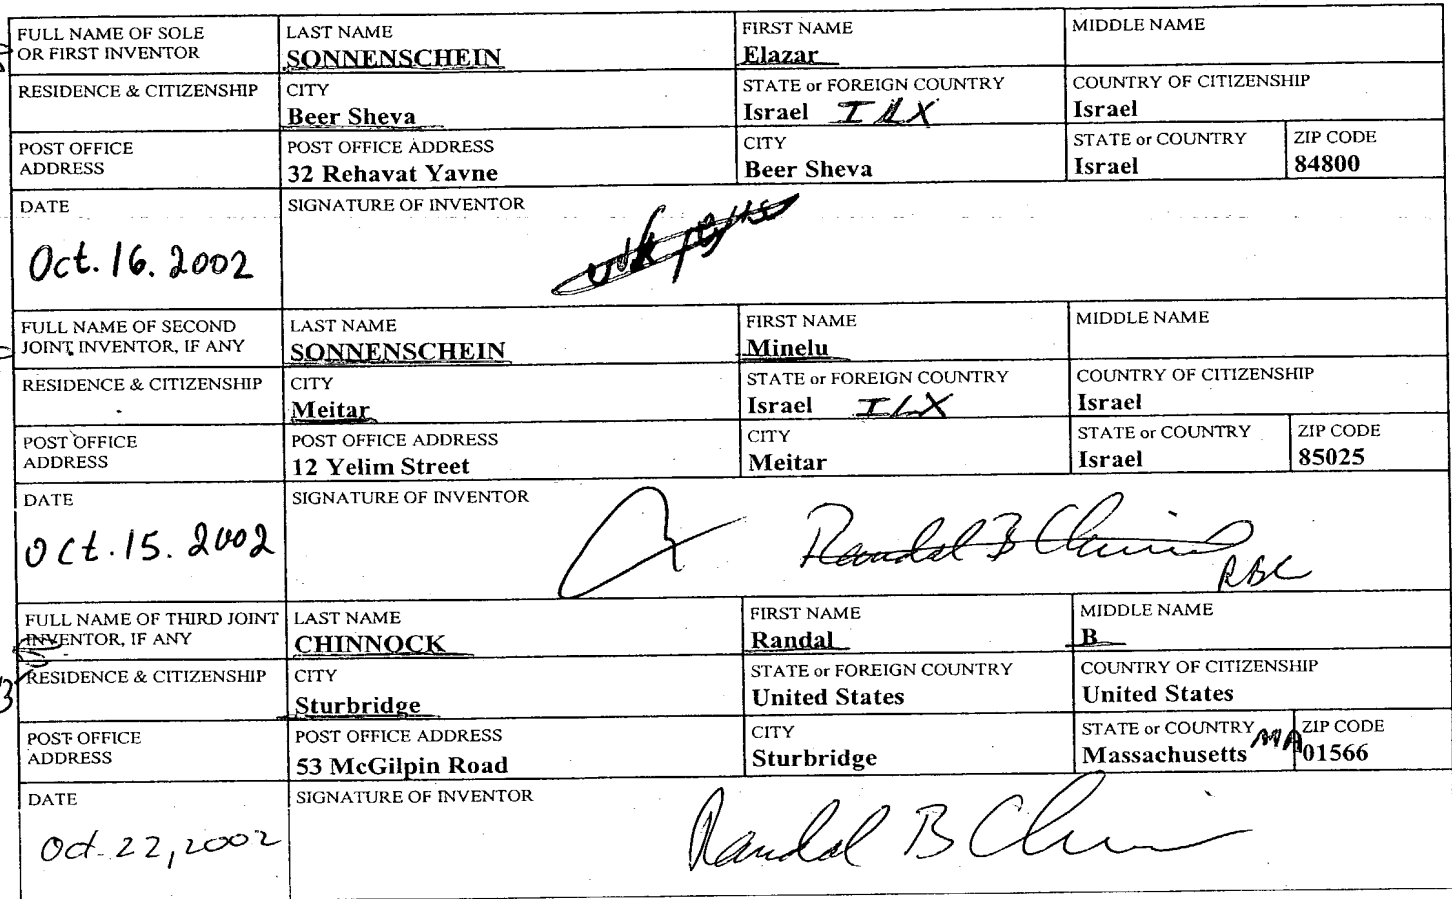 FULL NAME OF SOLE OR FIRST INVENTOR
LAST NAME
SONNENSCHEIN
FIRST NAME
Elazar
MIDDLE NAME
RESIDENCE & CITIZENSHIP
CITY
Beer Sheva
STATE or FOREIGN COUNTRY
Israel ILX
COUNTRY OF CITIZENSHIP
Israel
POST OFFICE
ADDRESS
POST OFFICE ADDRESS
32 Rehavat Yavne
CITY
Beer Sheva
STATE or COUNTRY
Israel
ZIP CODE
84800
DATE
Oct. 16. 2002
SIGNATURE OF INVENTOR
FULL NAME OF SECOND
JOINT INVENTOR, IF ANY
LAST NAME
SONNENSCHEIN
FIRST NAME
Minelu
MIDDLE NAME
RESIDENCE & CITIZENSHIP
CITY
Meitar
STATE or FOREIGN COUNTRY
Israel ILX
COUNTRY OF CITIZENSHIP
Israel
POST OFFICE
ADDRESS
POST OFFICE ADDRESS
12 Yelim Street
CITY
Meitar
STATE or COUNTRY
Israel
ZIP CODE
85025
DATE
Oct. 15. 2002
SIGNATURE OF INVENTOR
Randal B Chinnock
RBC
FULL NAME OF THIRD JOINT
INVENTOR, IF ANY
LAST NAME
CHINNOCK
FIRST NAME
Randal
MIDDLE NAME
B
RESIDENCE & CITIZENSHIP
CITY
Sturbridge
STATE or FOREIGN COUNTRY
United States
COUNTRY OF CITIZENSHIP
United States
POST OFFICE
ADDRESS
POST OFFICE ADDRESS
53 McGilpin Road
CITY
Sturbridge
STATE or COUNTRY
Massachusetts MA
ZIP CODE
01566
DATE
Oct. 22, 2002
SIGNATURE OF INVENTOR
Randal B Chinnock